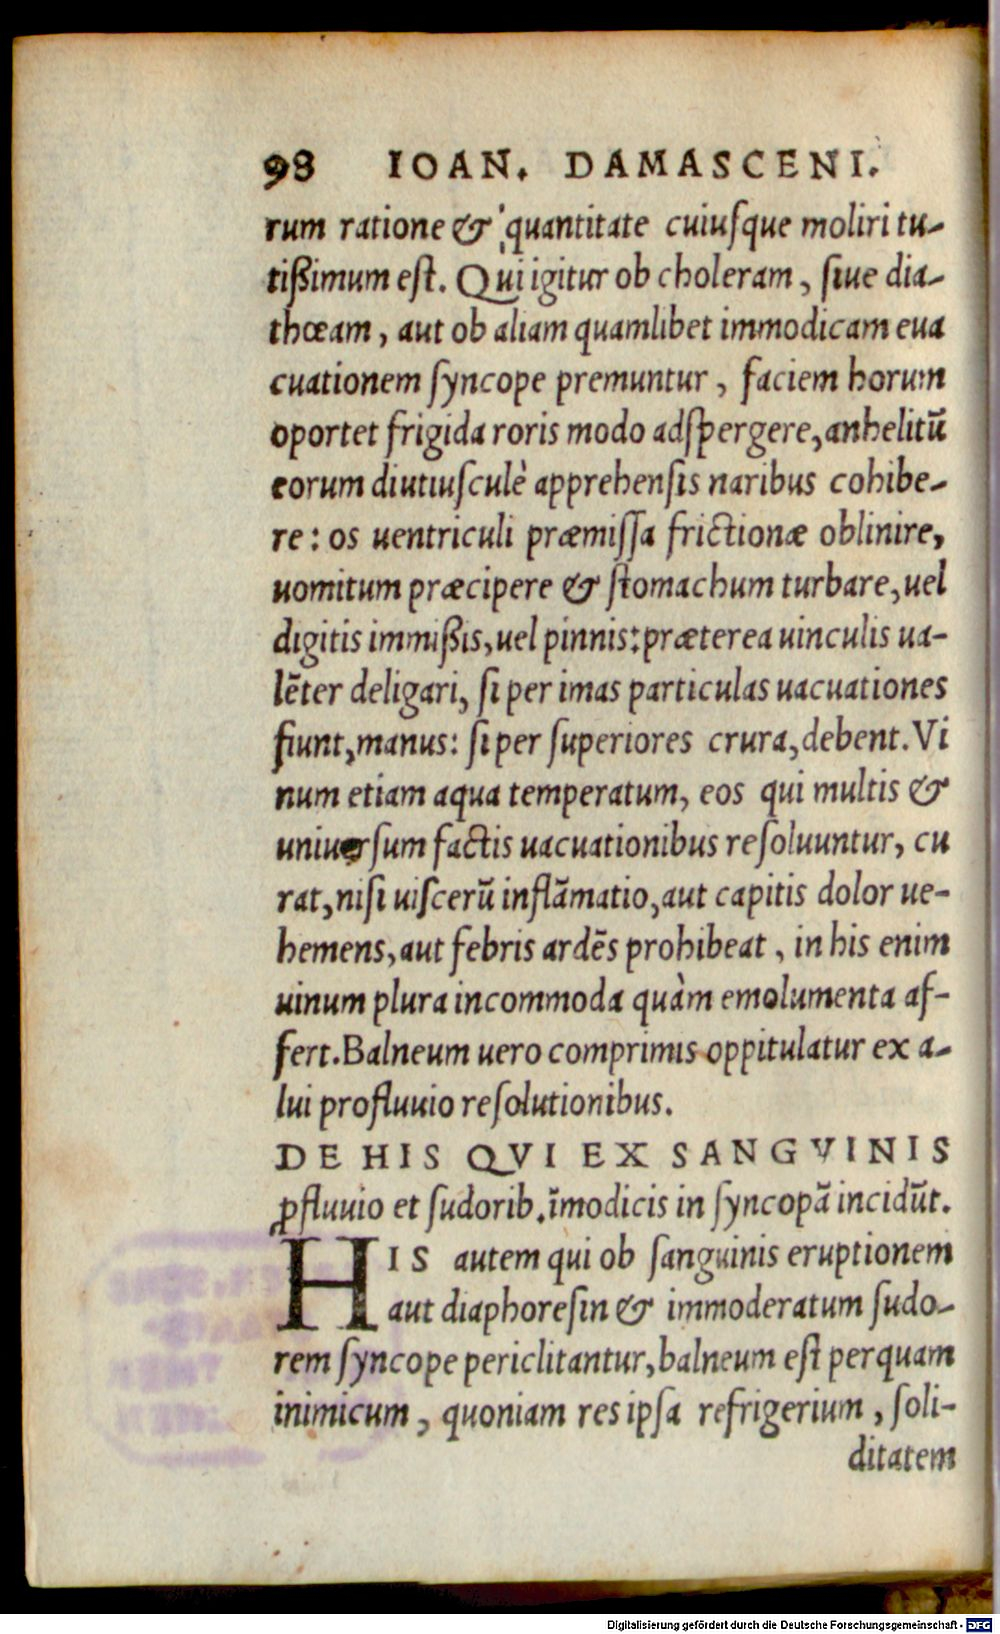 98 IOAN. DAMASCENI.
rum ratione & quantitate cuiuſque moliri tu-
tißimum eſt. Qui igitur ob choleram, ſiue dia-
thœam, aut ob aliam quamlibet immodicam eua
cuationem ſyncope premuntur, faciem horum
oportet frigida roris modo adſpergere, anhelitū
eorum diutiuſculè apprehenſis naribus cohibe-
re: os uentriculi præmiſſa frictionæ oblinire,
uomitum præcipere & ſtomachum turbare, uel
digitis immißis, uel pinnis: præterea uinculis ua-
lēter deligari, ſi per imas particulas uacuationes
fiunt, manus: ſi per ſuperiores crura, debent. Vi
num etiam aqua temperatum, eos qui multis &
uniuerſum factis uacuationibus reſoluuntur, cu
rat, niſi uiſcerū inflāmatio, aut capitis dolor ue-
hemens, aut febris ardēs prohibeat, in his enim
uinum plura incommoda quàm emolumenta af-
fert. Balneum uero comprimis oppitulatur ex a-
lui profluuio reſolutionibus.
DE HIS QVI EX SANGVINIS
ꝓfluuio et ſudorib. īmodicis in ſyncopā incidūt.
HIS autem qui ob ſanguinis eruptionem
aut diaphoreſin & immoderatum ſudo-
rem ſyncope periclitantur, balneum eſt perquam
inimicum, quoniam res ipſa refrigerium, ſoli-
ditatem
Digitalisierung gefördert durch die Deutsche Forschungsgemeinschaft - DFG